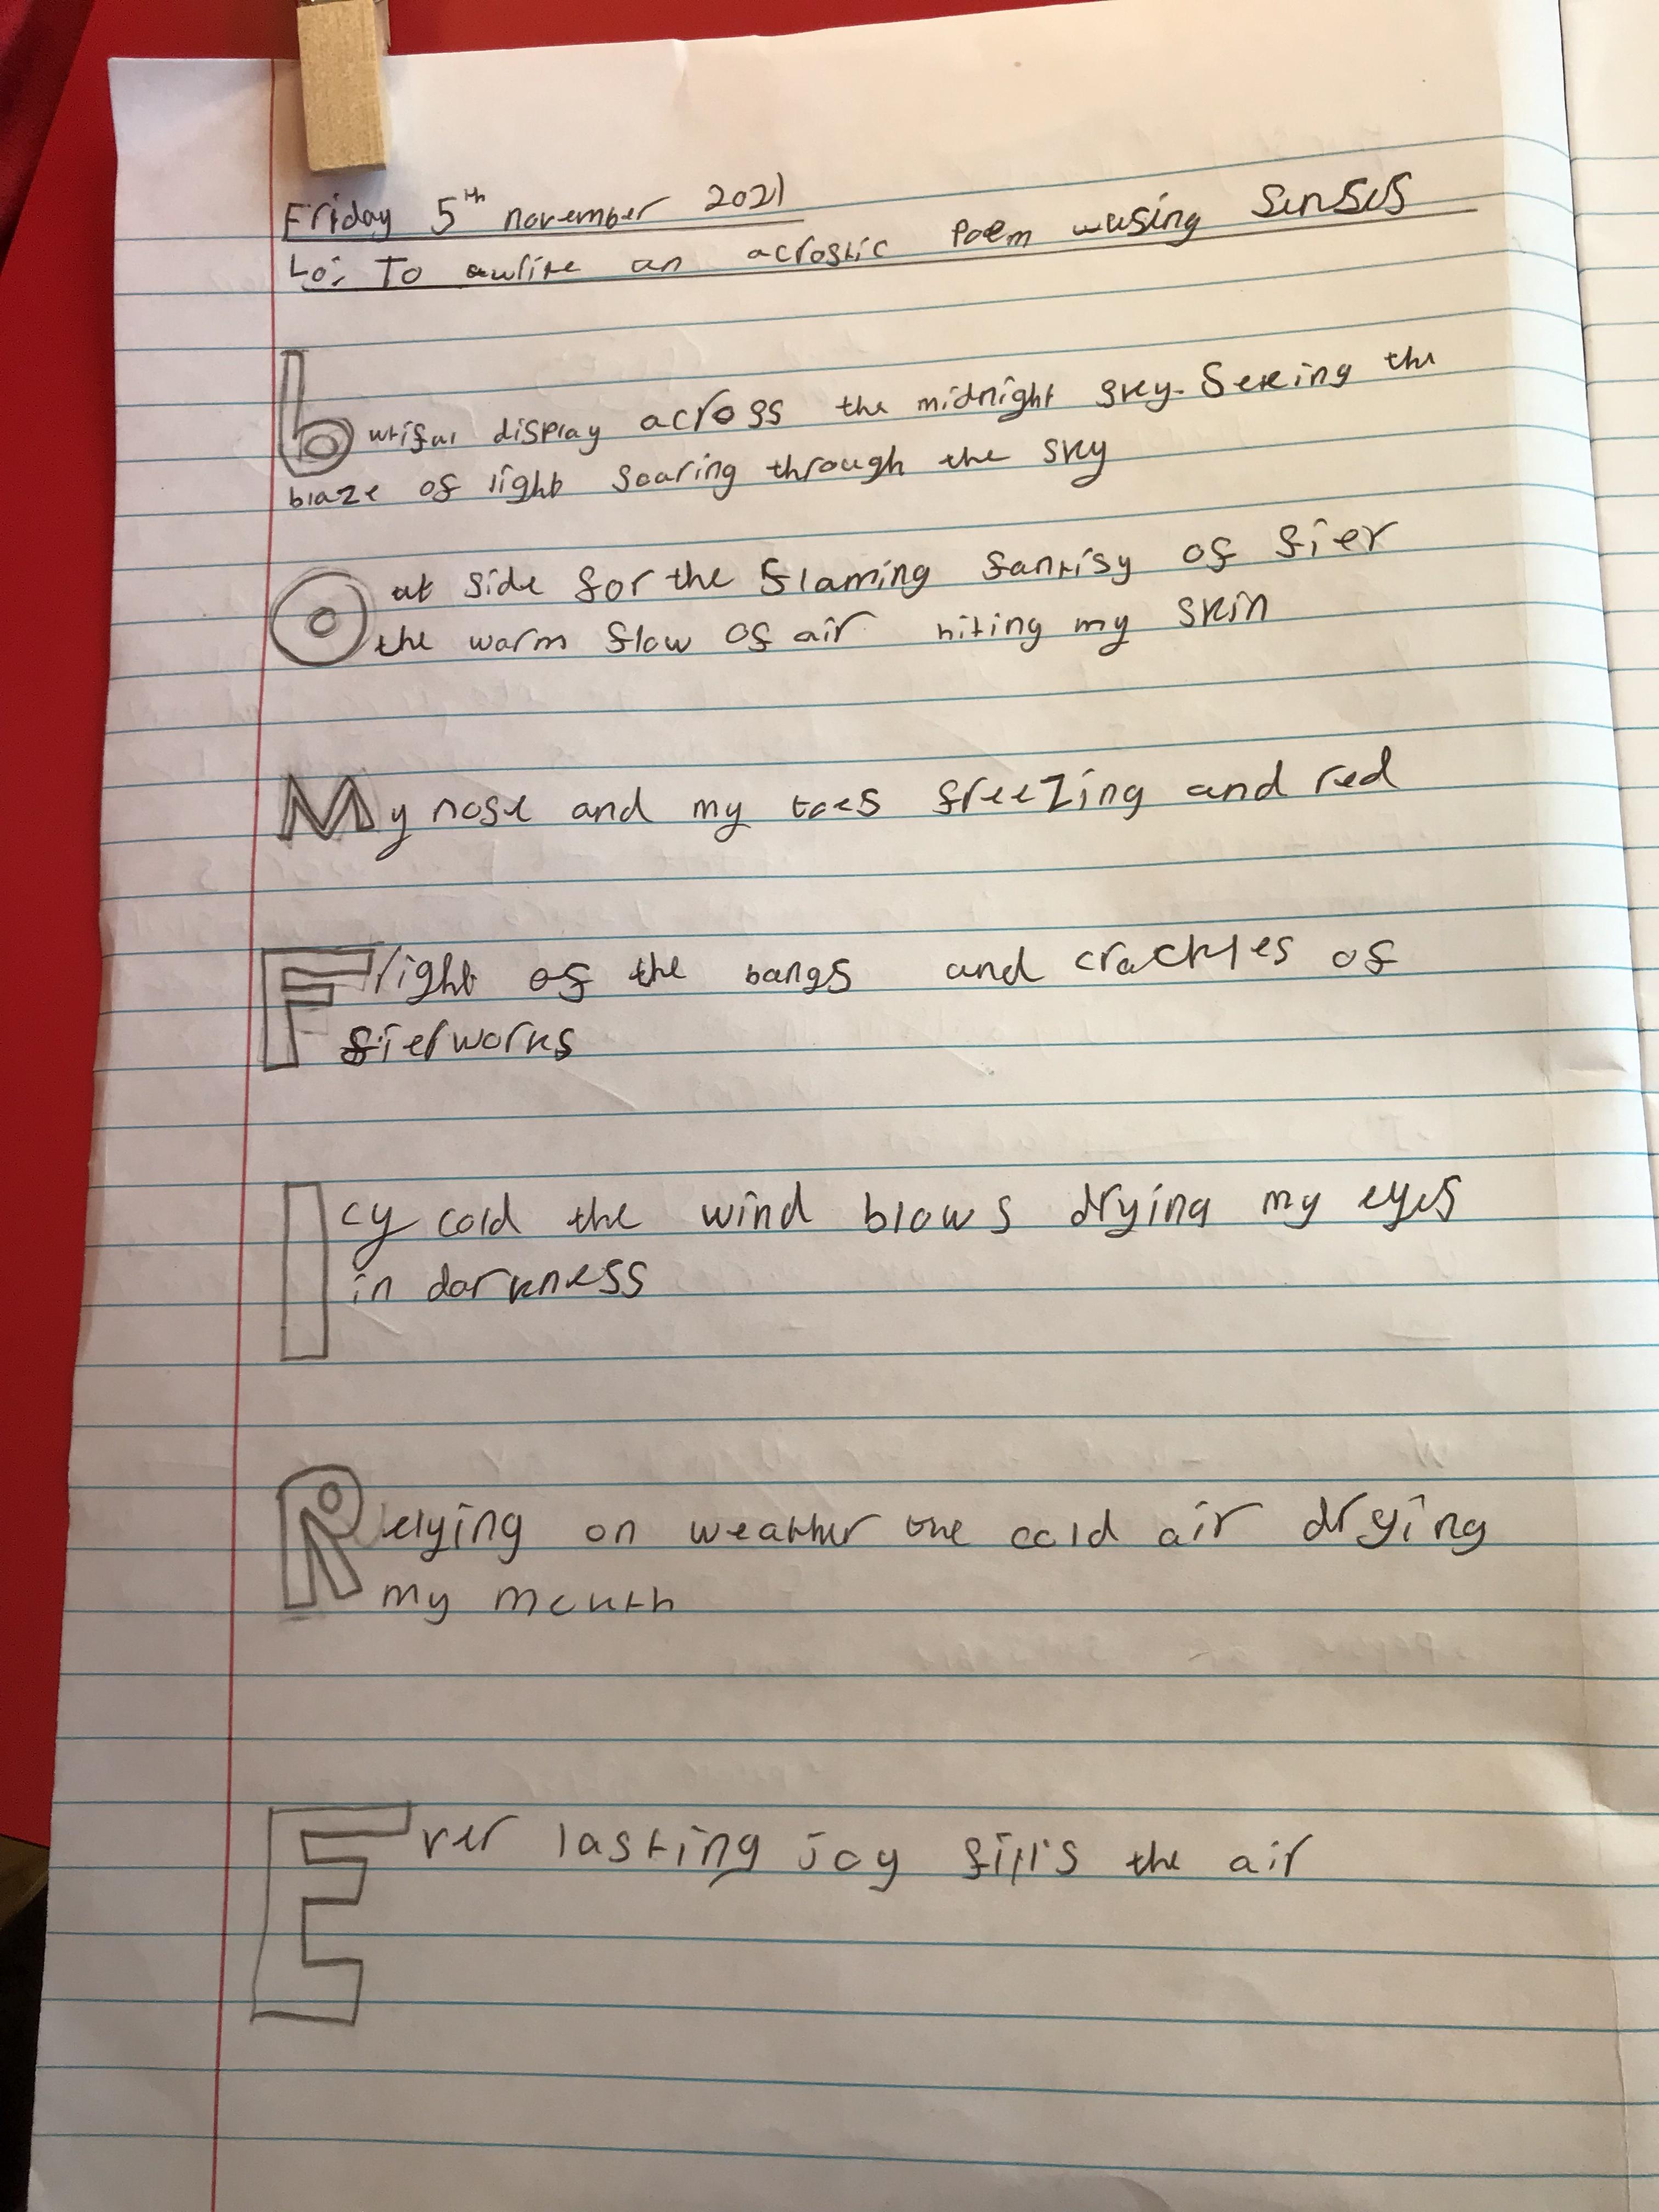 Friday 5th november 2021
Lo: To write an acrostic Poem using Senses
butifal display across the midnight sky. Seeing the
blaze of light Soaring through the sky
Out side for the flaming fantisy of fier
the warm flow of air hiting my skin
My nose and my toes freezing and red
Fright of the bangs and crackles of
fierworks
Icy cold the wind blows drying my eyes
in darkness
Relying on weather the cold air drying
my mouth
Ever lasting joy fills the air